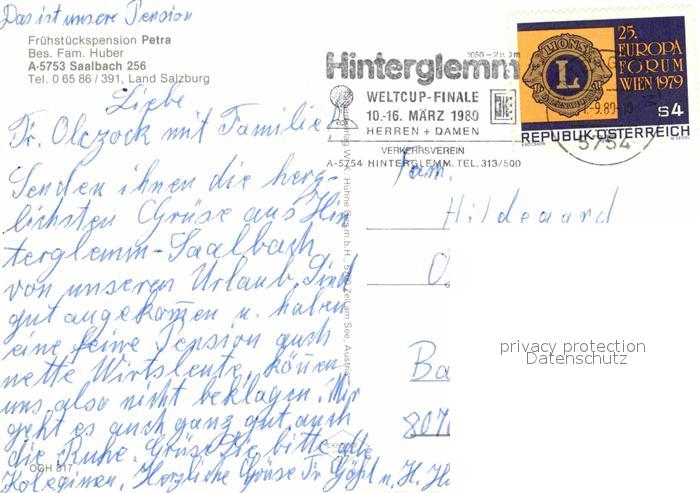 Das ist unsere Pension
Frühstückspension Petra
Bes. Fam. Huber
A-5753 Saalbach 256
Tel. 0 65 86 / 391, Land Salzburg
Liebe
Fr. Olczock mit Familie!
Senden ihnen die herz-
lichsten Grüse aus Hin
terglemm-Saalbach
von unseren Urlaub. Sind
gut angekommen u. haben
eine feine Pension auch
nette Wirtsleute, können
uns also nicht beklagen. Mir
geht es auch ganz gut, auch
die Ruhe. Grüse Sie bitte alle
Koleginen. Herzliche Grüse Fr. u. H.
OCH 817
Hinterglemm
WELTCUP-FINALE
10.-16. MÄRZ 1980
HERREN + DAMEN
VERKEHRSVEREIN
A-5754 HINTERGLEMM, TEL. 313/500
25.
EUROPA
FORUM
WIEN 1979
LIONS
L
S4
REPUBLIK ÖSTERREICH
5754
Fam.
Hildegard
O.
Ba
807
privacy protection
Datenschutz